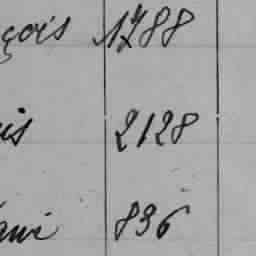 çois 1788
is 2128
836